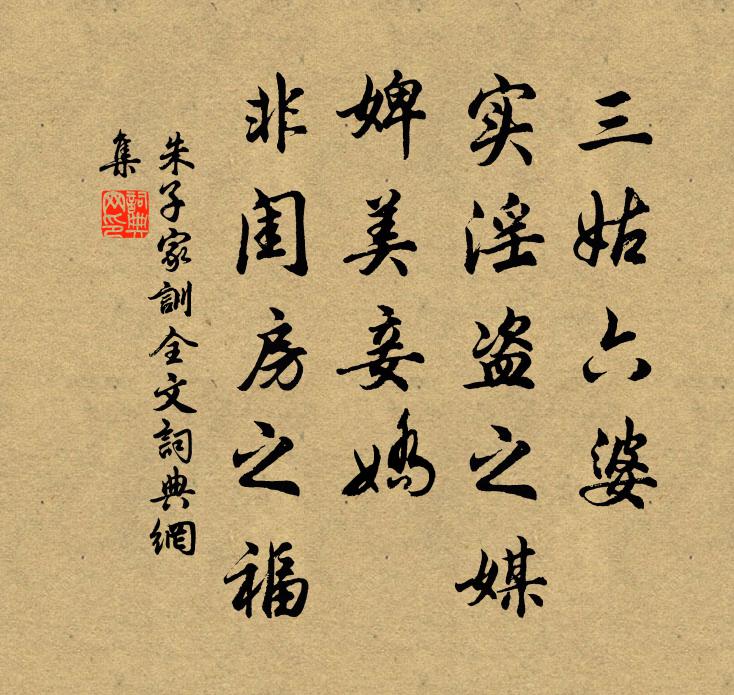 三姑六婆
实淫盗之媒
婢美妾嬌
非闺房之福
朱子家訓全文詞典網
集
詞典
网印